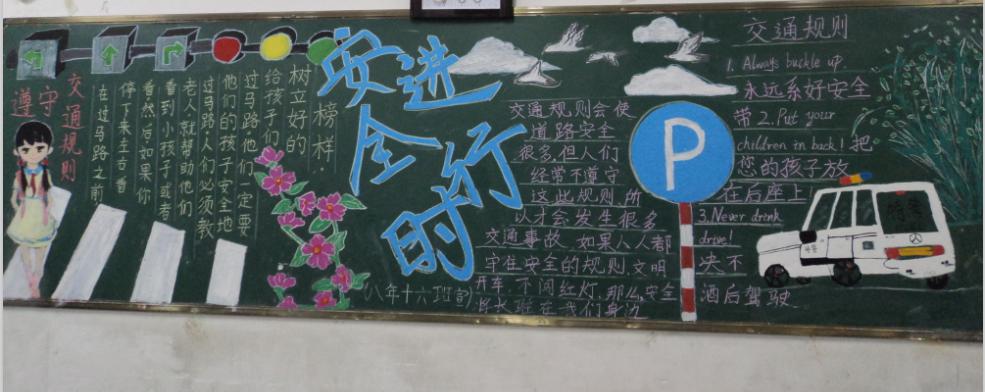 遵守
交通规则
在过马路之前
停下来左右看
看然后如果你
看到小孩子或者
老人就帮助他们
过马路.人们必须教
他们的孩子安全地
过马路.他们一定要
给孩子们
树立好的
榜样.
安全
进行时
(八年十六班宣)
交通规则会使
道路安全
很多.但人们
经常不遵守
这些规则.所
以才会发生很多
交通事故.如果人人都
守住安全的规则.文明
开车.不闯红灯.那么.安全
将长驻在我们身边
P
交通规则
1. Always buckle up.
永远系好安全
带 2. Put your
children in back! 把
您的孩子放
在后座上
3.Never drink
drive!
决不
酒后驾驶